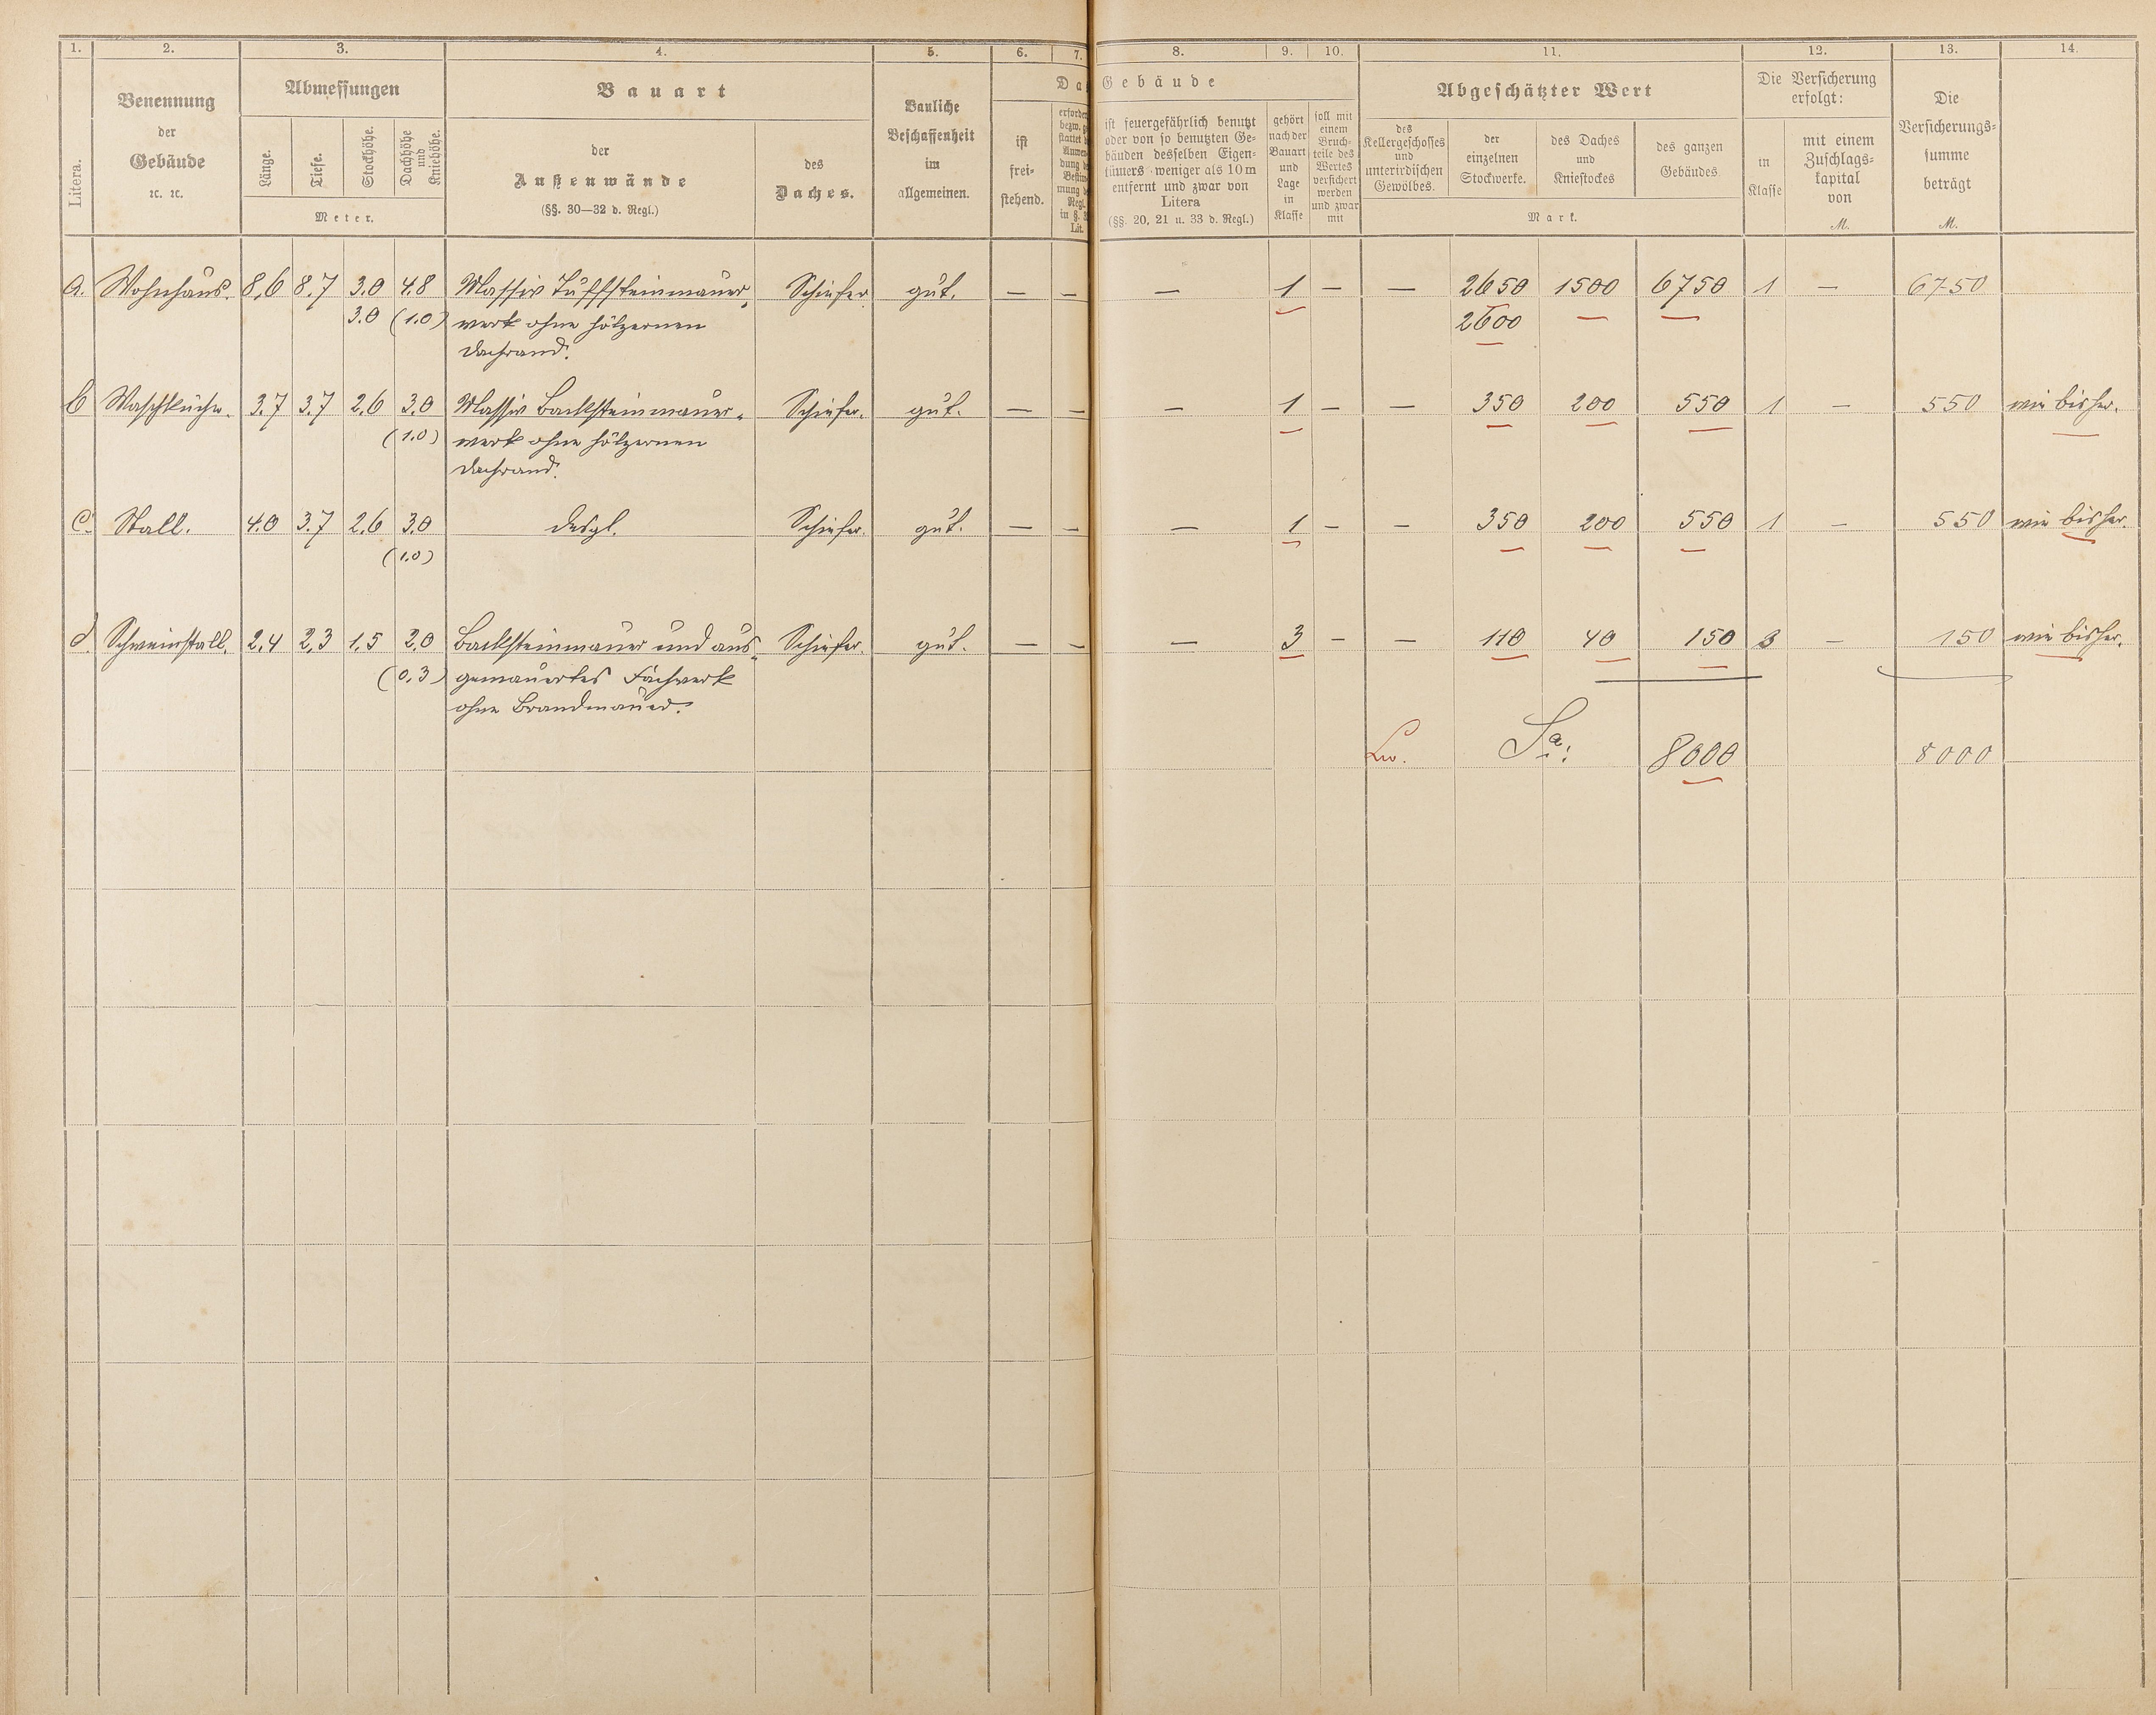 1. 2. 3. 4. 5. 6. 7. 8. 9. 10. 11. 12. 13. 14.
Litera.
Benennung
der
Gebäude
ꝛc. ꝛc.
Abmessungen
Länge.
Tiefe.
Stockhöhe.
Dachhöhe
und
Kniehöhe.
Meter.
Bauart
der
Außenwände
(§§. 30—32 d. Regl.)
des
Daches.
Bauliche
Beschaffenheit
im
allgemeinen.
Da
Gebäude
ist
frei-
stehend.
ist feuergefährlich benutzt
oder von so benutzten Ge-
bäuden desselben Eigen-
tümers weniger als 10 m
entfernt und zwar von
Litera
(§§. 20, 21 u. 33 d. Regl.)
gehört
nach der
Bauart
und
Lage
in
Klasse
soll mit
einem
Bruch-
teile des
Wertes
versichert
werden
und zwar
mit
Abgeschätzter Wert
des
Kellergeschosses
und
unterirdischen
Gewölbes.
der
einzelnen
Stockwerke.
des Daches
und
Kniestockes
des ganzen
Gebäudes.
Mark.
Die Versicherung
erfolgt:
in
Klasse
mit einem
Zuschlags-
kapital
von
M.
Die
Versicherungs-
summe
beträgt
M.
a. Wohnhaus. 8,6 8,7 3.0 4.8 Massiv Tuffsteinmauer- Schiefer gut. — — — 1 — — 2650 1500 6750 1 — 6750
3.0 (1.0) werk ohne hölzernen 2600
Dachrand.
b Waschküche. 3.7 3.7 2.6 3.0 Massiv Backsteinmauer- Schiefer. gut. — — — 1 — — 350 200 550 1 — 550 wie bisher.
(1.0) werk ohne hölzernen
Dachrand.
c. Stall. 4.0 3.7 2.6 3.0 desgl. Schiefer. gut. — — — 1 — — 350 200 550 1 — 550 wie bisher.
(1.0)
d. Schweinstall. 2,4 2,3 1,5 2,0 Backsteinmauer und aus- Schiefer. gut. — — — 3 — — 110 40 150 3 — 150 wie bisher.
(0,3) gemauertes Fachwerk
ohne Brandmauer.
Sa: 8000 8000